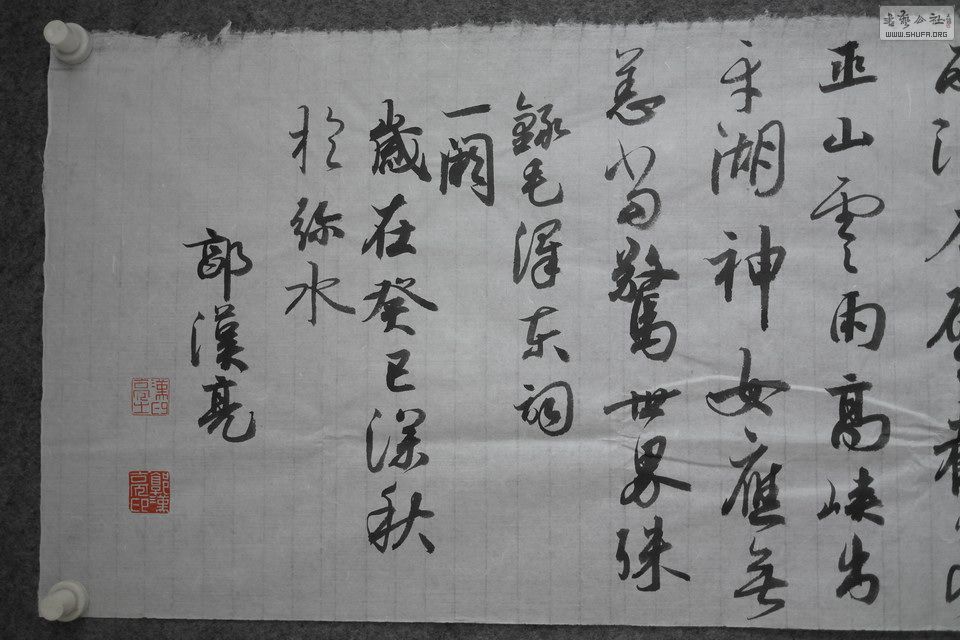 巫山雲雨高峡出
平湖神女應無
恙当驚世界殊
錄毛澤东詞
一闋
歲在癸巳深秋
於弥水
郭漢亮
郭漢亮印
書藝公社
WWW.SHUFA.ORG